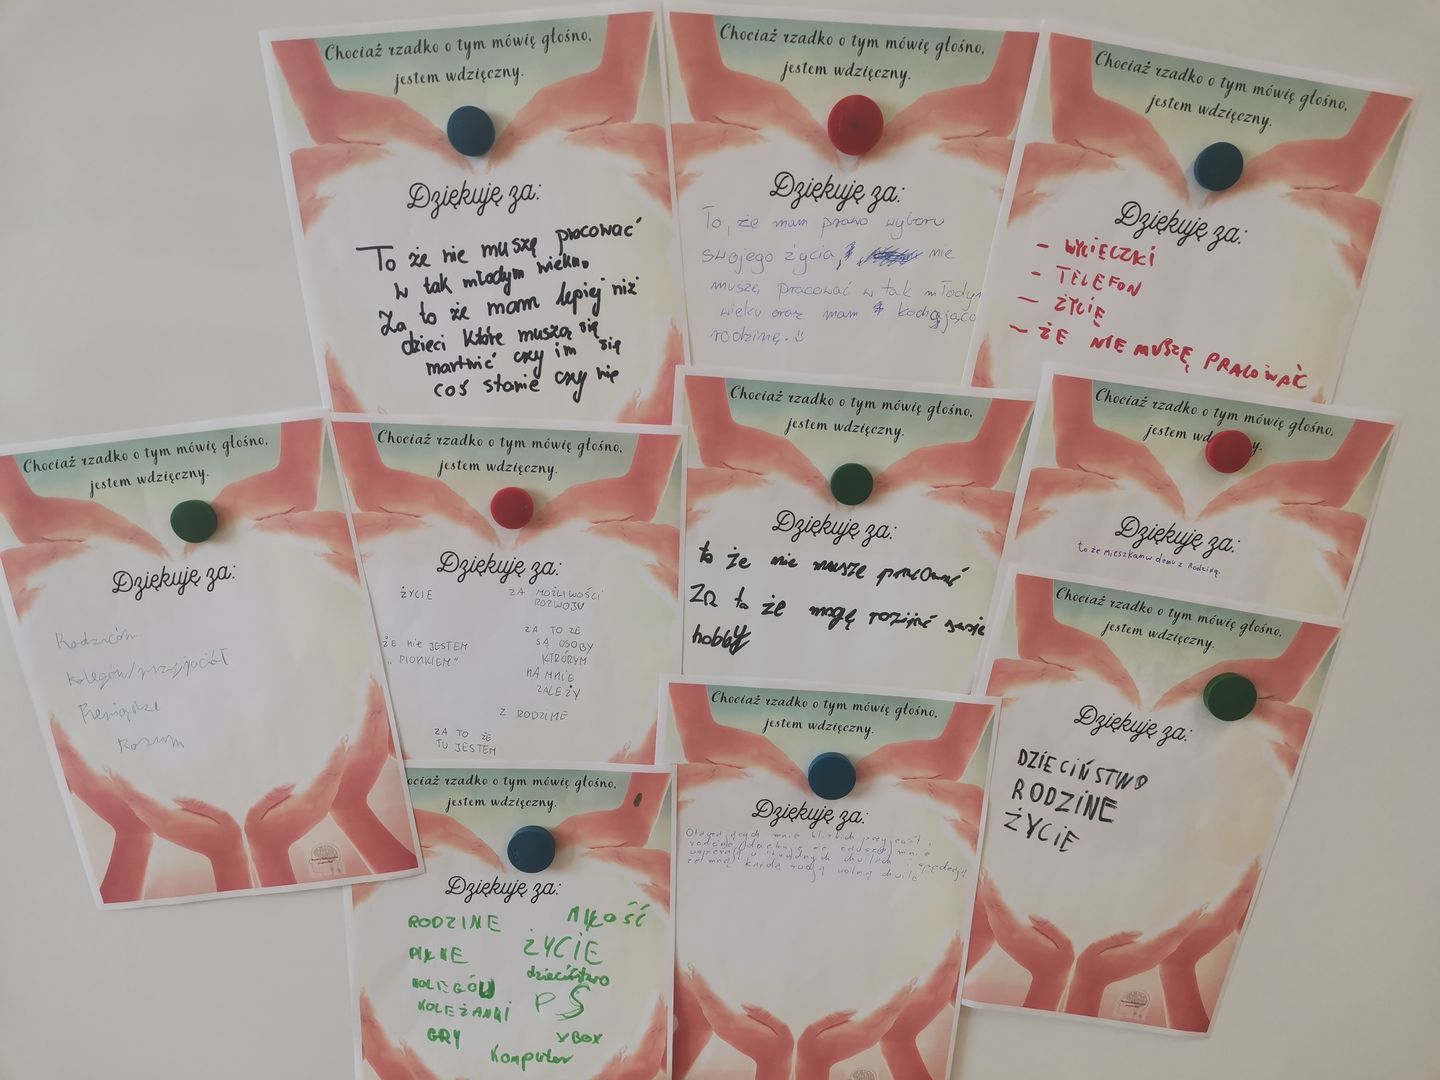 Chociaż rzadko o tym mówię głośno,
jestem wdzięczny.
Dziękuję za:
To że nie muszę pracować
w tak młodym wieku.
Za to że mam lepiej niż
dzieci które muszą się
martwić czy im się
coś stanie czy nie
Chociaż rzadko o tym mówię głośno,
jestem wdzięczny.
Dziękuję za:
To, że mam prawo wyboru
swojego życia, nie
muszę pracować w tak młodym
wieku oraz mam kochającą
rodzinę.
Chociaż rzadko o tym mówię głośno,
jestem wdzięczny.
Dziękuję za:
- WYCIECZKI
- TELEFON
- ŻYCIE
- ŻE NIE MUSZĘ PRACOWAĆ
Chociaż rzadko o tym mówię głośno,
jestem wdzięczny.
Dziękuję za:
Rodziców
kolegów/przyjaciół
Pieniądze
Rozum
Chociaż rzadko o tym mówię głośno,
jestem wdzięczny.
Dziękuję za:
ŻYCIE
ŻE NIE JESTEM
„PIONKIEM"
ZA MOŻLIWOŚCI
ROZWOJU
ZA TO ŻE
SĄ OSOBY
KTRÓRYM
NA MNIE
ZALEŻY
Z RODZINE
ZA TO ŻE
TU JESTEM
Chociaż rzadko o tym mówię głośno,
jestem wdzięczny.
Dziękuję za:
to że nie muszę pracować
Za to że mogę rozijać swoje
hobby
Chociaż rzadko o tym mówię głośno,
jestem
Dziękuję za:
to że mieszkam w domu z Rodziną.
Chociaż rzadko o tym mówię głośno,
jestem wdzięczny.
Dziękuję za:
DZIECIŃSTWO
RODZINE
ŻYCIE
ociaż rzadko o tym mówię głośno,
jestem wdzięczny.
Dziękuję za:
RODZINE
MIŁOŚĆ
ŻYCIE
KOLEGÓW
dzieciństwo
KOLEŻANKI
PS
GRY
XBOX
Komputer
Chociaż rzadko o tym mówię głośno,
jestem wdzięczny.
Dziękuję za:
mnie bliskich przyjaciół,
rodzinę, mnie
w trudnych chwilach i
ze mną każdą wolną chwilę